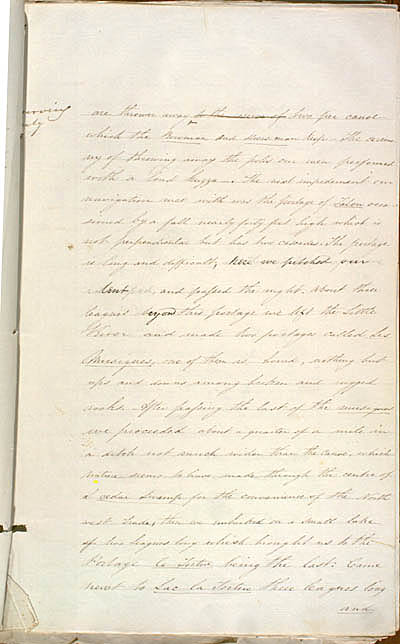 are thrown away to the num of two per canoe
which the Bowman and Steersman keep. The cerem
ny of throwing away the poles our men performed
with a loud huzza. The next impediment our
navigation met with was the portage of Talon occa
sioned by a fall nearly forty feet high which is
not perpendicular but has two courses. The portage
is long and difficult, here we pitched our
tent, and passed the night. About three
leagues beyond this portage we left the Little
River and made two portages called Les
Musiques, one of them is bound, nothing but
ups and downs among broken and rugged
rocks. After passing the last of the musiques
we proceeded about a quarter of a mile in
a ditch not much wider than the Canoe, which
nature seems to have made through the centre of
a cedar Swamp for the convenience of the North
west Trade, then we embarked on a small lake
of two leagues long which brought us to the
Portage La Tortue being the last. Came
next to Lac la Tortue three leagues long
and